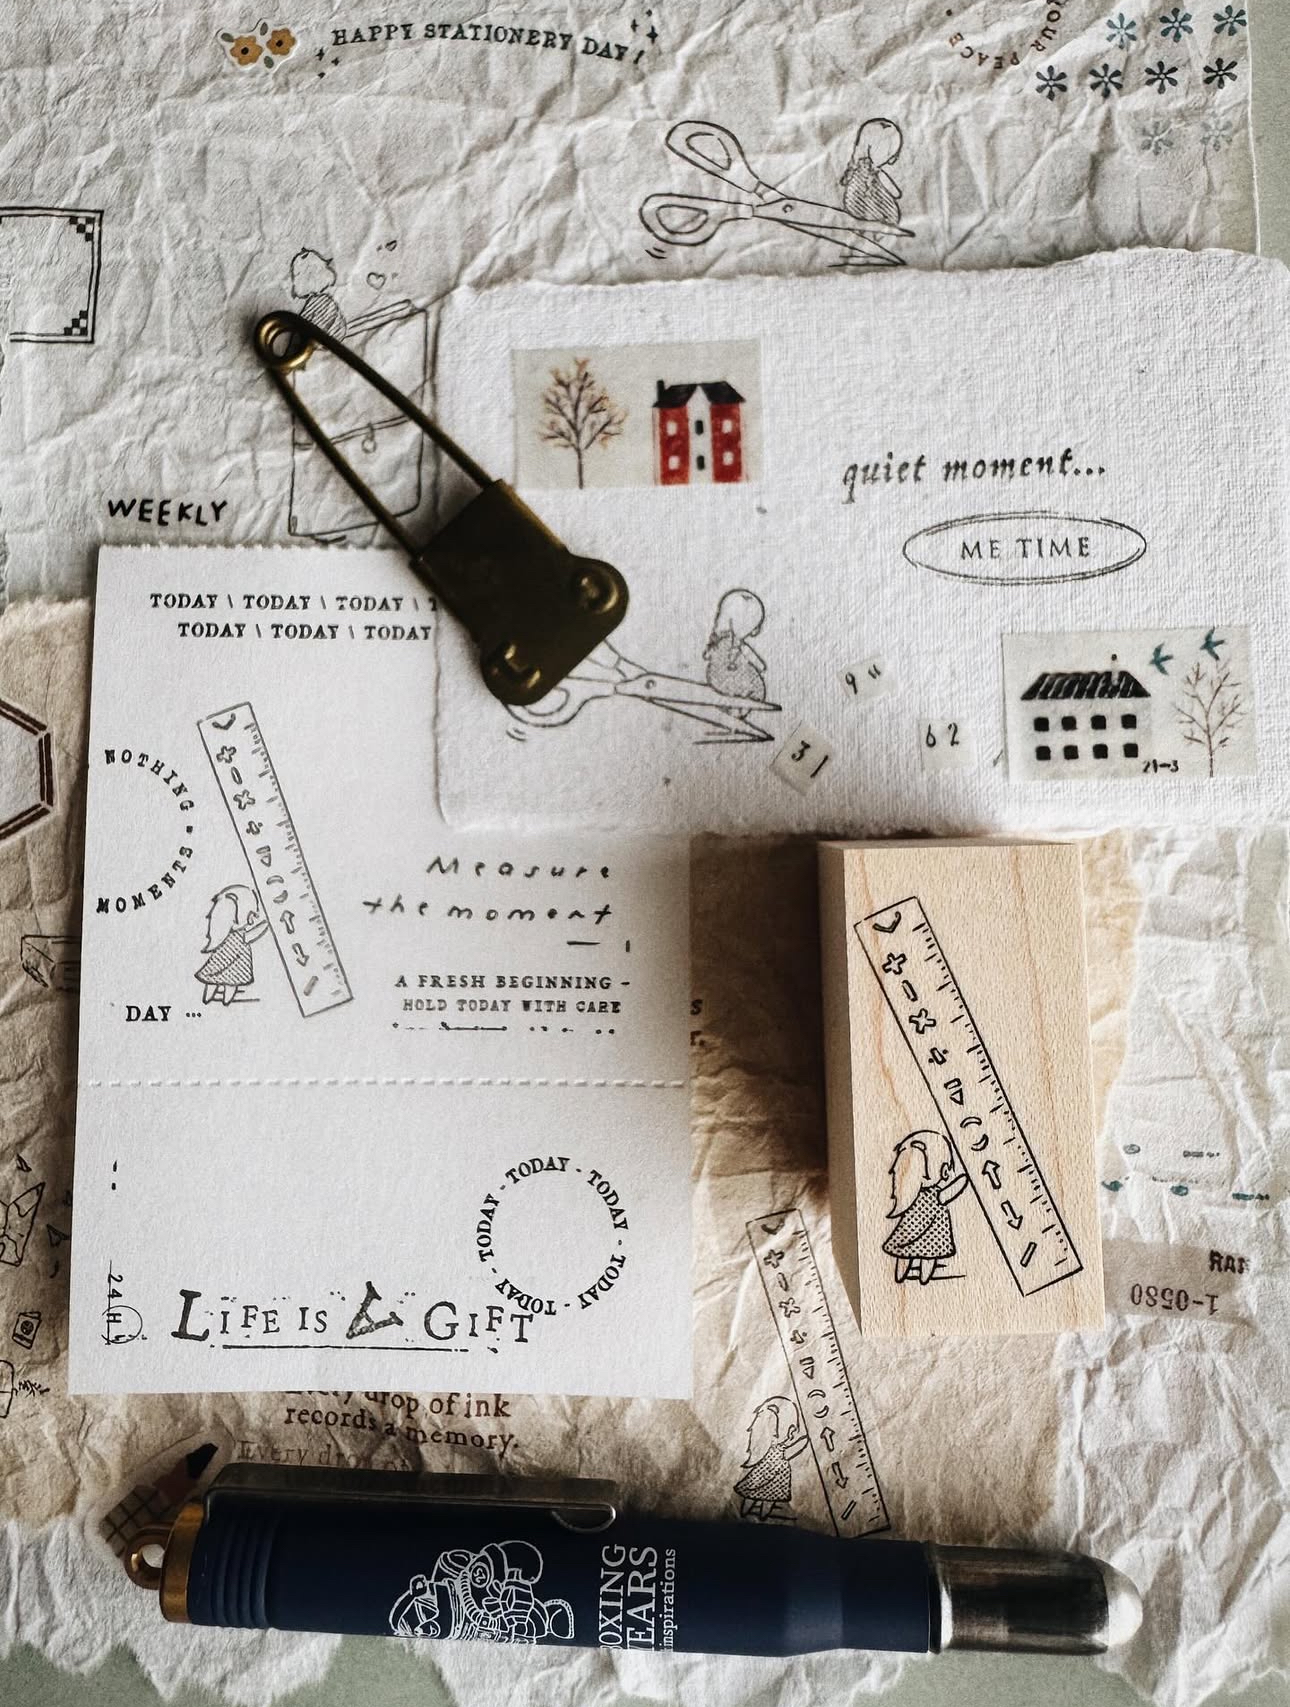 HAPPY STATIONERY DAY!
YOUR PEACE
WEEKLY
quiet moment...
ME TIME
TODAY \ TODAY \ TODAY \ T
TODAY \ TODAY \ TODAY
9"
62
31
21-3
NOTHING - MOMENTS -
Measure
the moment
A FRESH BEGINNING -
HOLD TODAY WITH CARE
DAY ...
TODAY - TODAY - TODAY - TODAY - TODAY -
24H
LIFE IS A GIFT
drop of ink
records a memory.
Every drop
1-0580
OXING
YEARS
inspirations